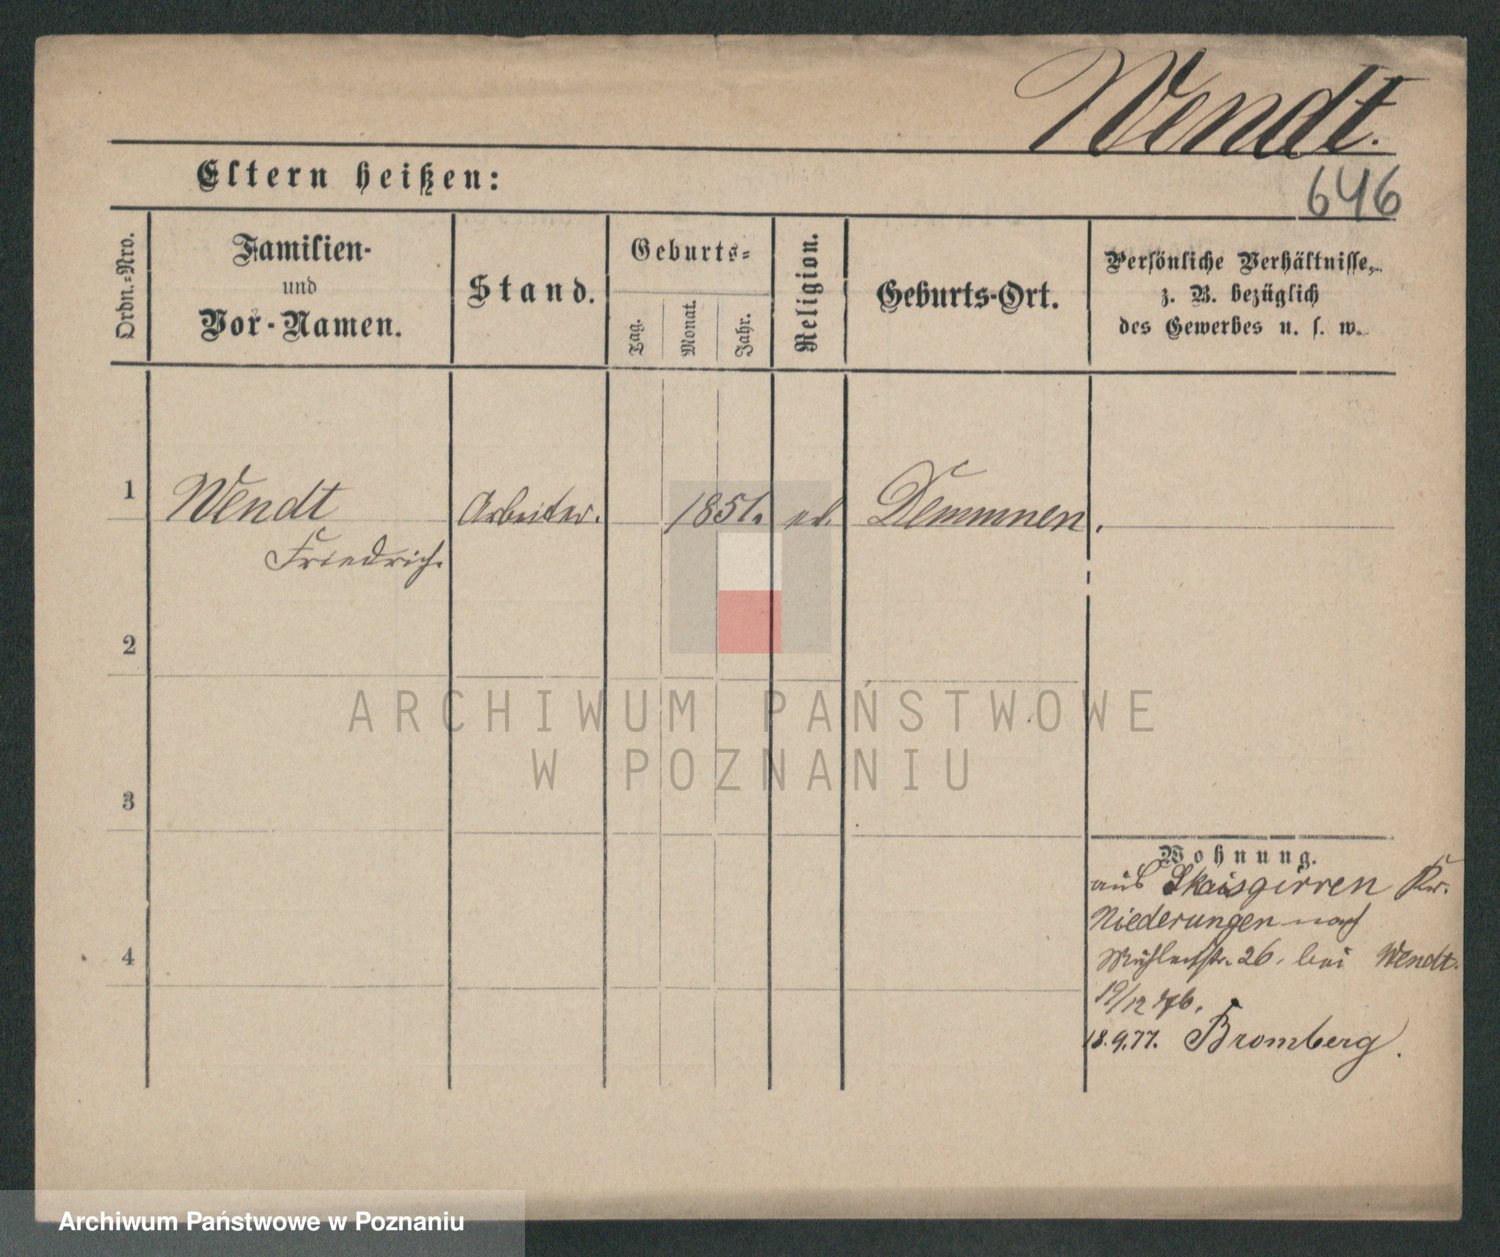 Wendt.
Eltern heißen:
646
Ordn.-Nro.
Familien-
und
Vor-Namen.
Stand.
Geburts-
Tag.
Monat.
Jahr.
Religion.
Geburts-Ort.
Persönliche Verhältnisse,
z. B. bezüglich
des Gewerbes u. s. w.
1 Wendt Arbeiter. 1851. ev. Demmnen.
Friedrich.
2
3
4
Wohnung.
aus Skaisgirren Kr.
Niederungen nach
Mühlenstr. 26. bei Wendt.
19/12 76.
18.9.77. Bromberg.
ARCHIWUM PAŃSTWOWE
W POZNANIU
Archiwum Państwowe w Poznaniu